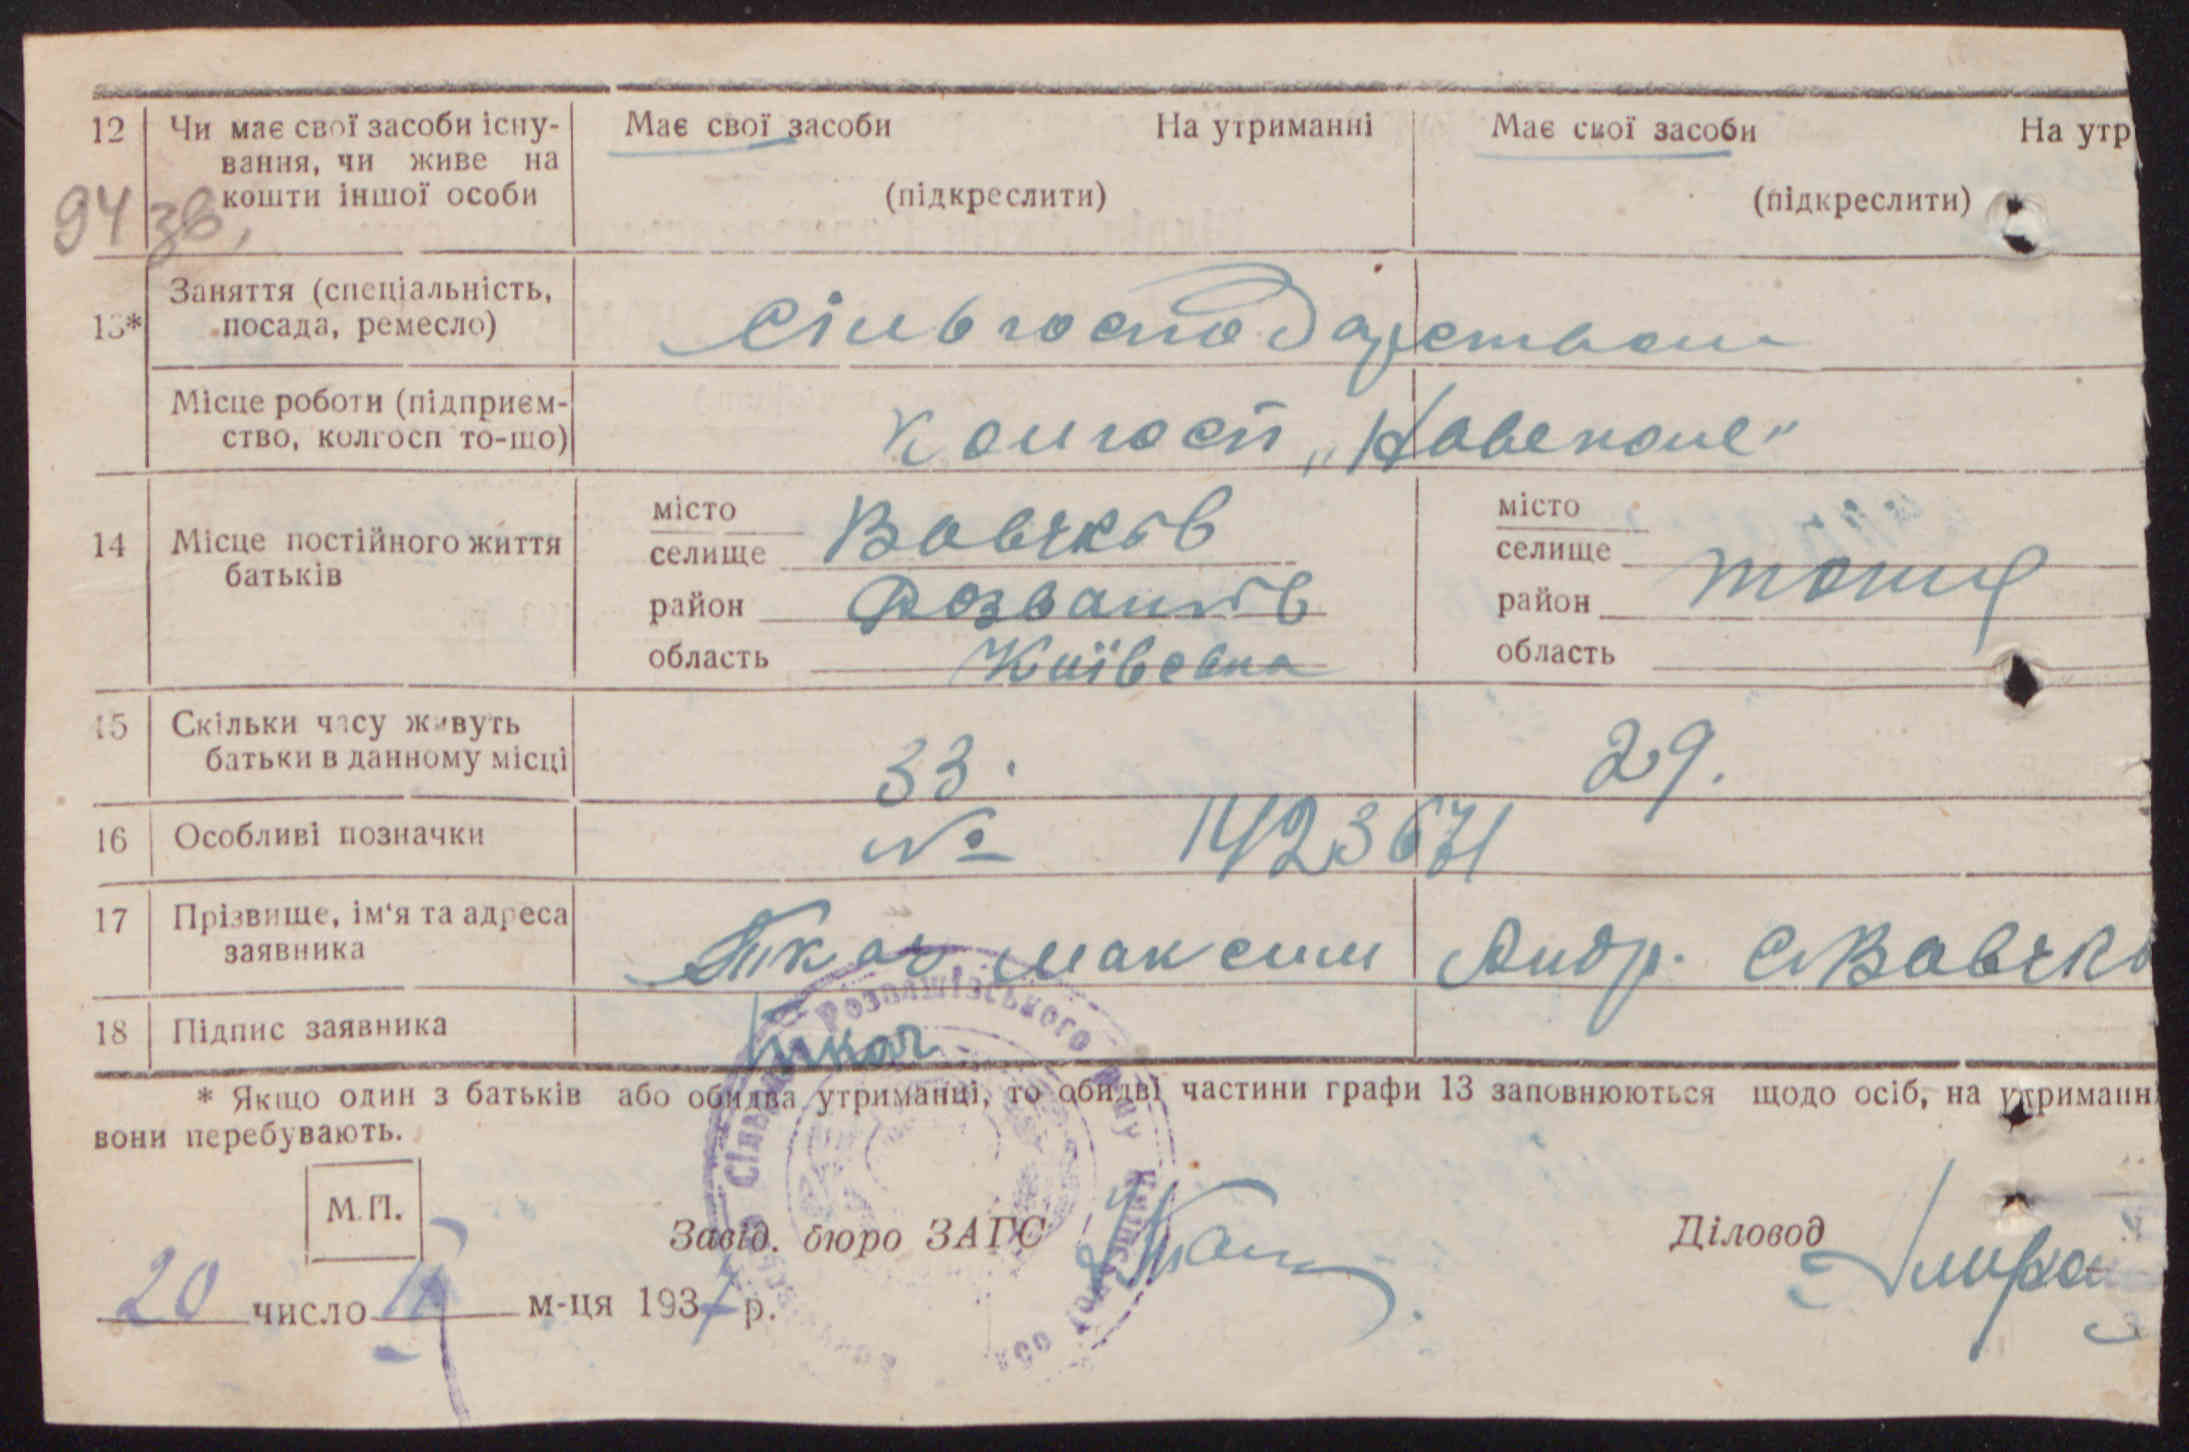 12 Чи має свої засоби існу- Має свої засоби На утриманні Має свої засоби На утр
вання, чи живе на
кошти іншої особи (підкреслити) (підкреслити)
94 зв,
Заняття (спеціальність,
13* посада, ремесло) Сільгосподарством
Місце роботи (підприєм-
ство, колгосп то-що) Колгосп „Нове поле"
14 Місце постійного життя
батьків
місто
селище Вовчків
район Розважів
область Київська
місто
селище
район тощ
область
15 Скільки часу живуть
батьки в данному місці 33. 29.
16 Особливі позначки № 1423671
17 Прізвище, ім'я та адреса
заявника Ткач Максим Андр. с Вовчк
18 Підпис заявника Ткач
* Якщо один з батьків або обидва утриманці, то обидві частини графи 13 заповнюються щодо осіб, на утриманн
вони перебувають.
М.П.
Завід. бюро ЗАГС Діловод
20 число м-ця 1937 р.
Розважівського